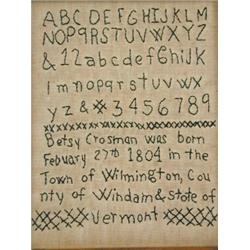 ABCDEFGHIJKLM
NOPQRSTUVWXYZ
&12abcdefGhiJk
lmnopqrstuvwx
yz&※3456789
Betsy Crosman was born
Febuary 27th 1804 in the
Town of Wilmington, Cou
nty of Windam & State of
Vermont